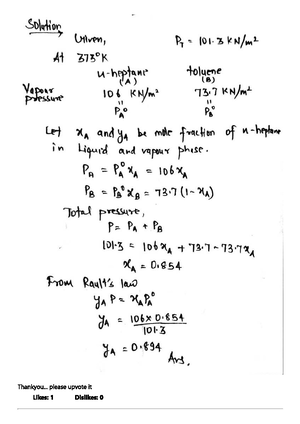 Solution
Given, P_T = 101.3 KN/m²
At 373°K
n-heptane toluene
(A) (B)
Vapour pressure 106 KN/m² 73.7 KN/m²
= =
P_A° P_B°
Let x_A and y_A be mole fraction of n-heptane
in Liquid and vapour phase.
P_A = P_A° x_A = 106x_A
P_B = P_B° x_B = 73.7 (1-x_A)
Total pressure,
P = P_A + P_B
101.3 = 106x_A + 73.7 - 73.7x_A
x_A = 0.854
From Rault's law
y_A P = x_A P_A°
y_A = 106 × 0.854 / 101.3
y_A = 0.894
Ans.
Thankyou... please upvote it
Likes: 1 Dislikes: 0